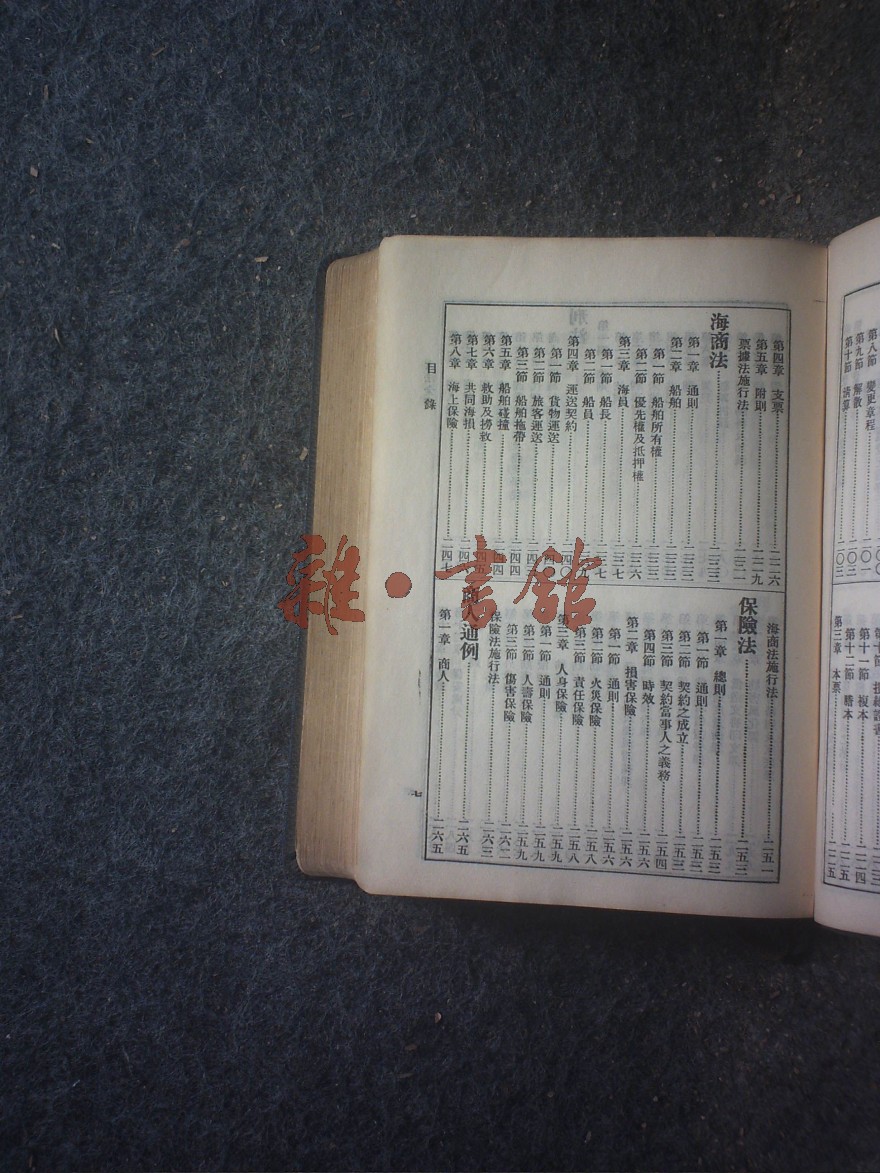 第八節 變更章程
第九節 解散
第十節 清算
第十一節 複本
第十二節 謄本
第三章 本票
第四章 支票 二一六
第五章 附則 二一九
票據法施行法
海商法 二三三
第一章 通則
第二章 船舶
第一節 船舶所有權
第二節 優先權及抵押權
第三章 海員
第一節 船長
第二節 船員
第四章 運送契約
第一節 貨物運送
第二節 旅客運送
第三節 船舶拖帶
第五章 船舶碰撞
第六章 救助及撈救
第七章 共同海損
第八章 海上保險
海商法施行法 二五一
保險法 二五三
第一章 總則 二五三
第一節 通則 二五三
第二節 契約之成立 二五三
第三節 契約當事人之義務 二五四
第四節 時效 二五六
第二章 損害保險 二五六
第一節 通則 二五六
第二節 火災保險 二五八
第三節 責任保險 二五八
第三章 人身保險 二五九
第一節 通則 二五九
第二節 人壽保險 二五九
第三節 傷害保險 二六二
保險法施行法 二六三
人通例 二六五
第一章 商人 二六五
目錄
七
雜·書館